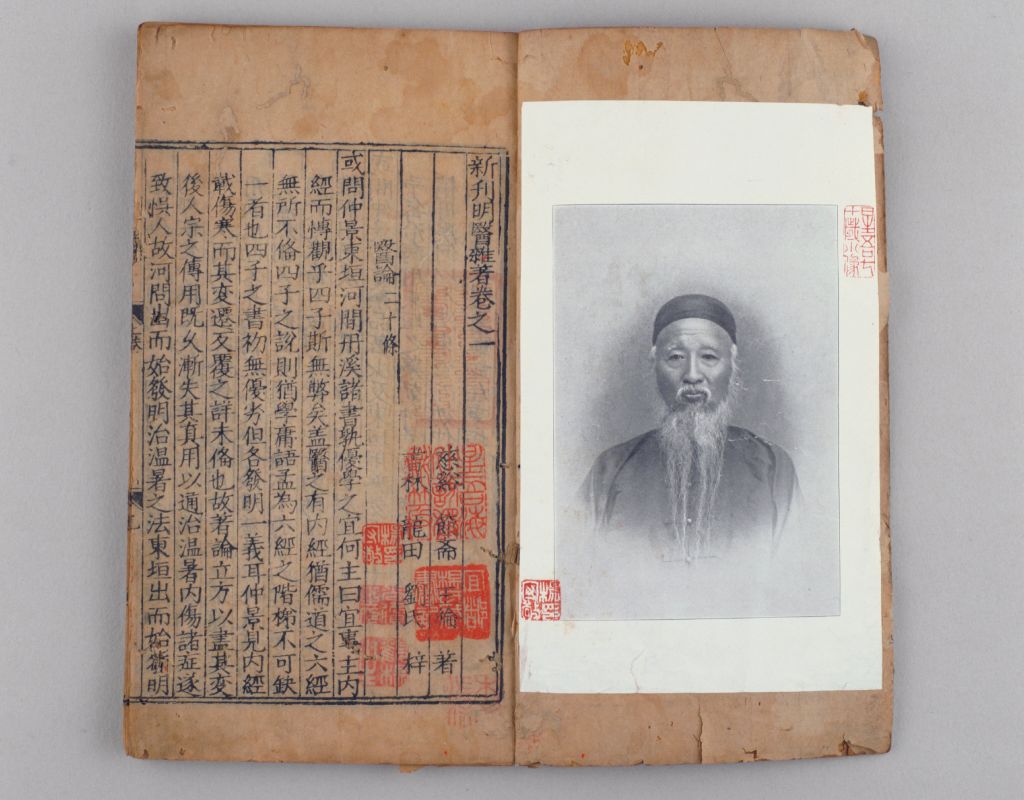 星吾七
十歲小像
楊守敬印
新刊明醫雜著卷之一
慈谿 節齋 王倫 著
書林 龍田 劉氏 梓
醫論二十條
或問仲景東垣河間丹溪諸書孰優學之宜何主曰宜專主內
經而博觀乎四子斯無弊矣盖醫之有內經猶儒道之六經
無所不俻四子之說則猶學庸語孟為六經之階梯不可缺
一者也四子之書初無優劣但各發明一義耳仲景見內經
載傷寒而其變遷反覆之詳未俻也故著論立方以盡其變
後人宗之傳用既久漸失其真用以通治溫暑內傷諸症遂
致悮人故河間出而始發明治溫暑之法東垣出而始發明